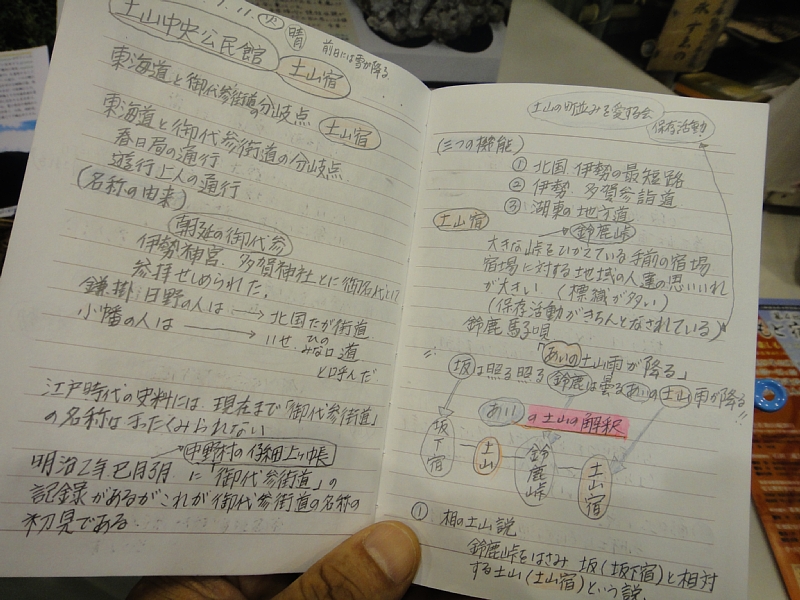 土山中央公民館
晴
前日には雪が降る
東海道と御代参街道の分岐点
土山宿
東海道と御代参街道の分岐点
土山宿
春日局の通行
遊行上人の通行
(名称の由来)
朝廷の御代参
伊勢神宮、多賀神社とに御名代にて
参拝せしめられた。
鎌掛 日野の人は → 北国たが街道
小幡の人は → いせ ひの みな口 道
と呼んだ
江戸時代の史料には、現在まで「御代参街道」
の名称はまったくみられない
中野村の仔細上り帳
明治2年巳月3月 に「御代参街道」の
記録があるがこれが御代参街道の名称の
初見である
土山の町並みを愛する会
保存活動
(三つの機能)
① 北国 伊勢の最短路
② 伊勢 多賀参詣道
③ 湖東の地方道
土山宿
鈴鹿峠
大きな峠をひかえている手前の宿場
宿場に対する地域の人達の思いいれ
が大きい (標識が多い)
(保存活動がきちんとなされている)
鈴鹿馬子唄
「あいの土山雨が降る」
坂は照る照る 鈴鹿は曇る あいの土山 雨が降る!!
あいの土山の解釈
坂下宿 — 土山 — 鈴鹿峠 — 土山宿
① 相の土山説
鈴鹿峠をはさみ 坂(坂下宿)と相対
する土山(土山宿)という説。